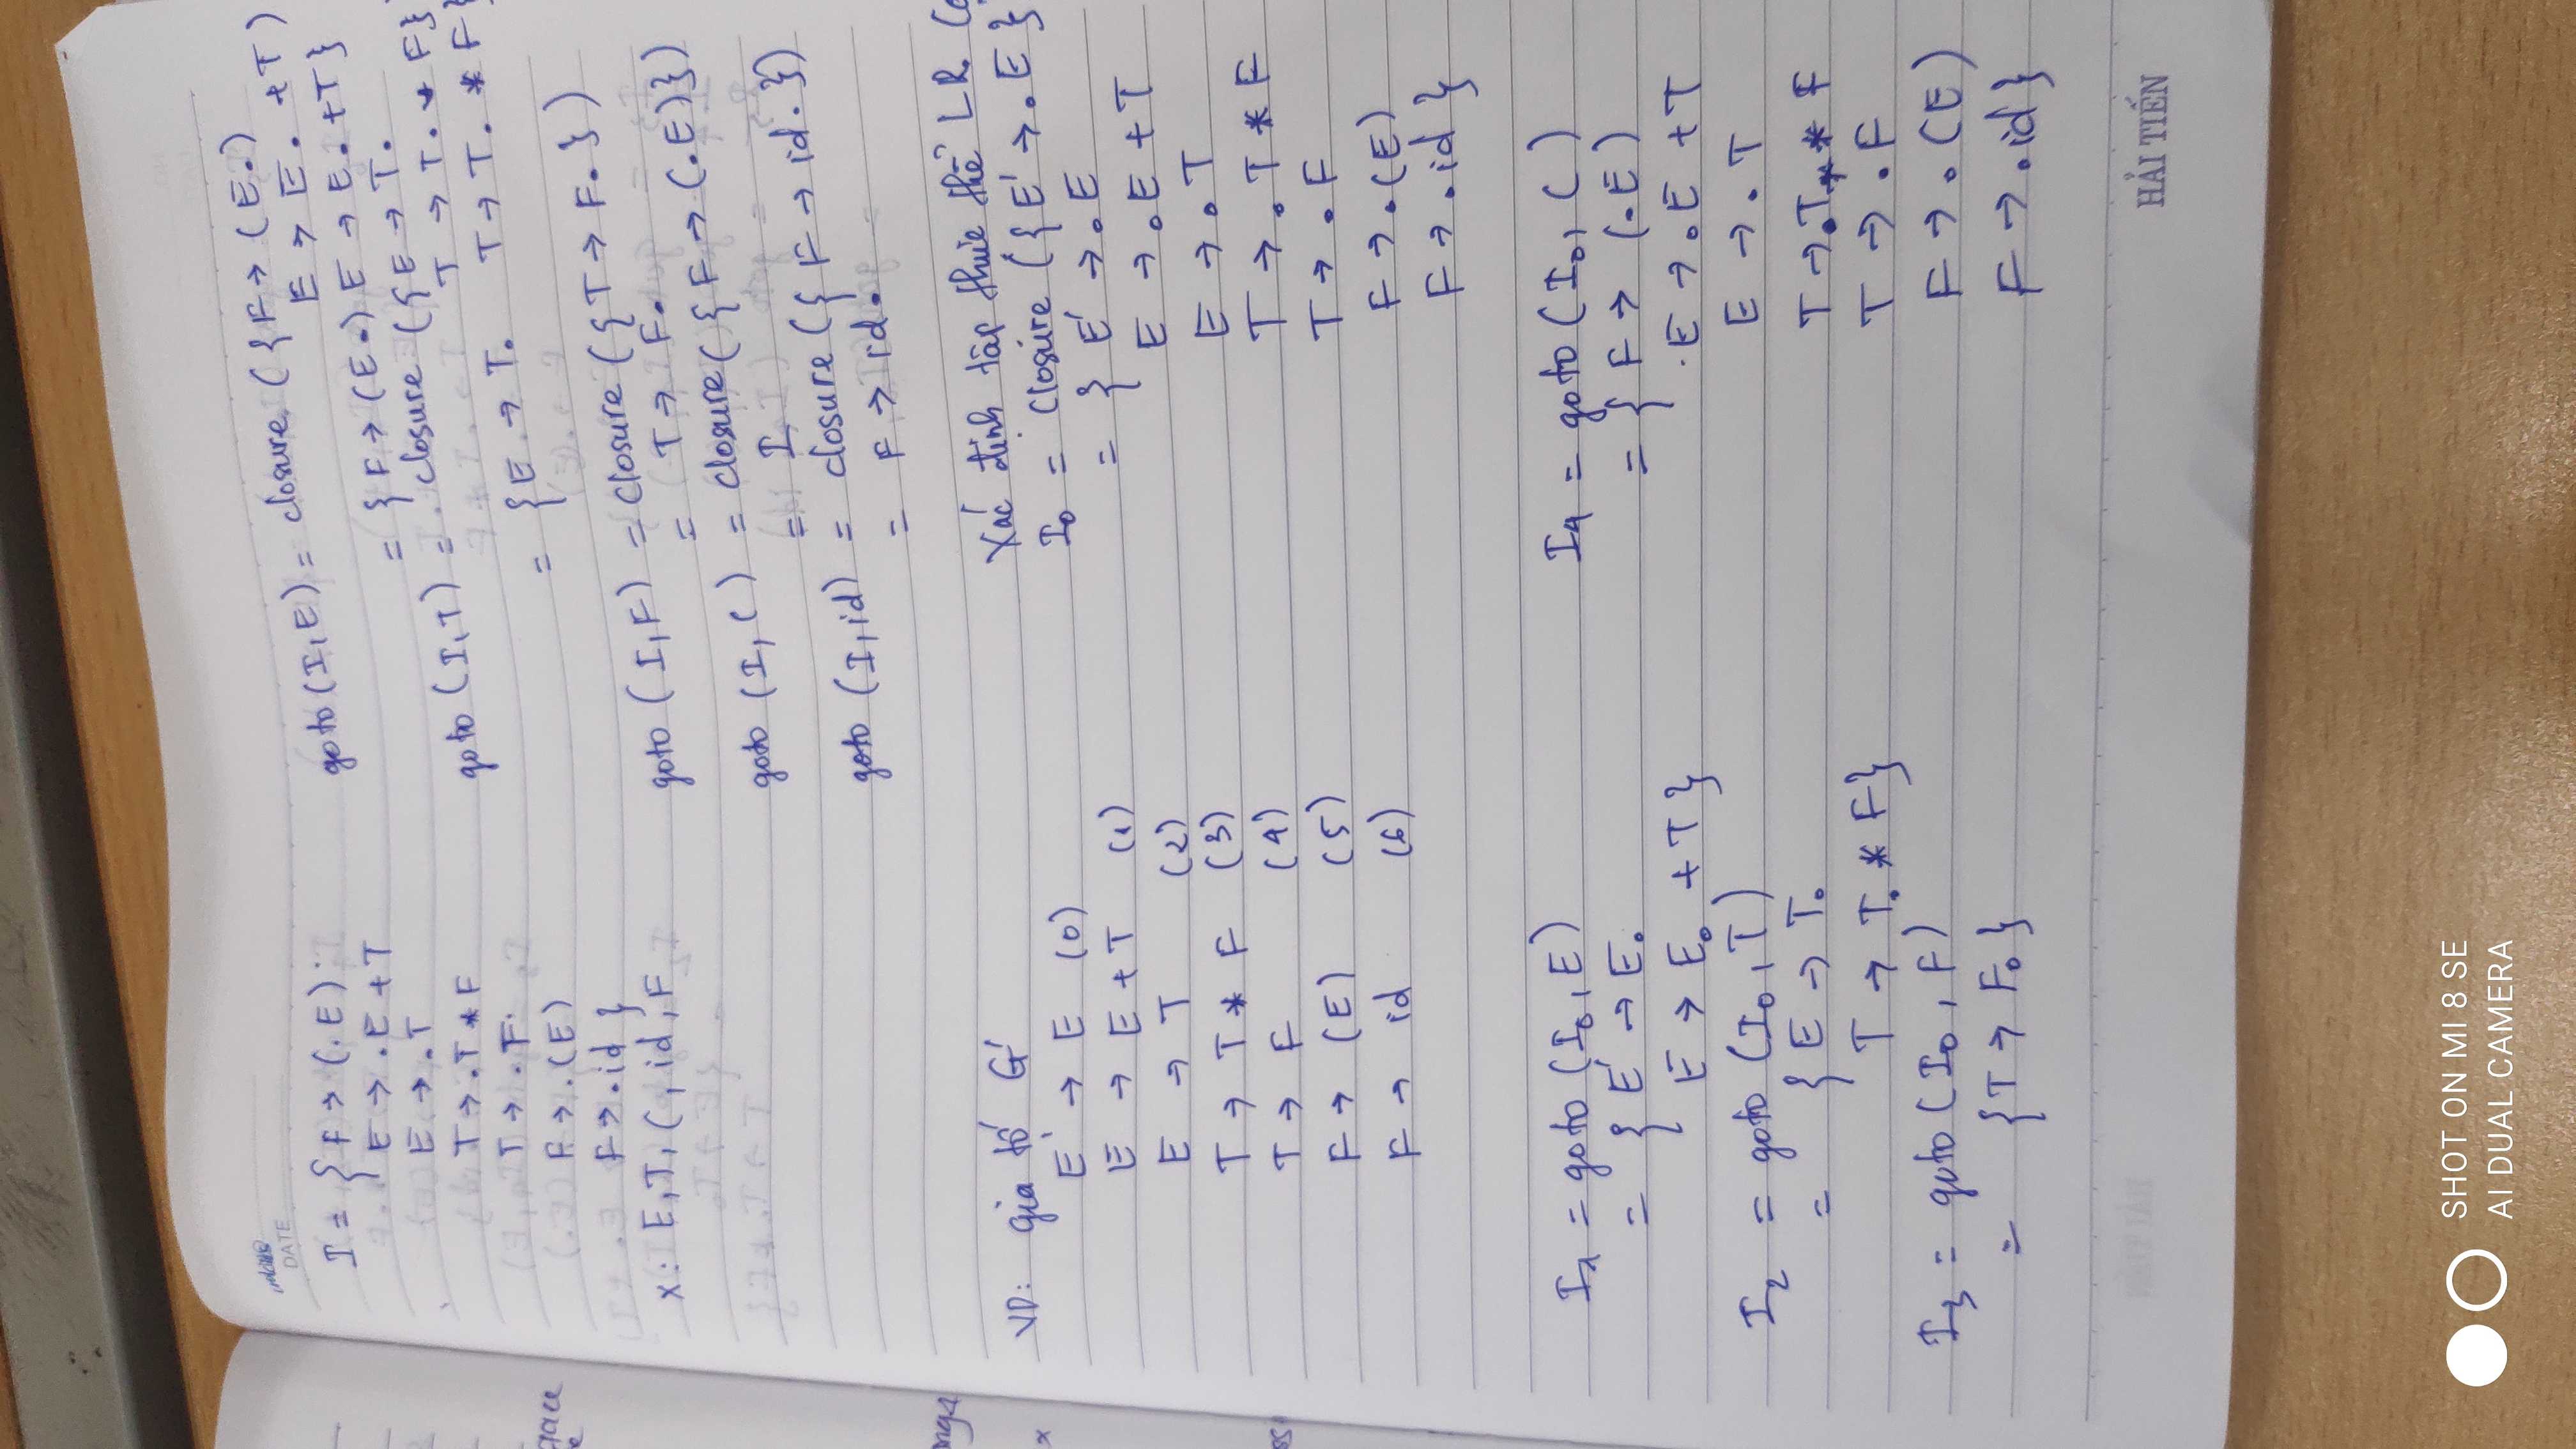 DATE
I = { F → (.E)
E → .E + T
E → .T
T → .T * F
T → .F
F → .(E)
F → .id }
X: E, T, (, id, F
goto (I, E) = closure ({ F → (E.)
E → E. + T)
= { F → (E.) E → E. + T }
goto (I, T) = closure ({ E → T.
T → T. * F }
= { E → T. T → T. * F }
goto (I, F) = closure ({ T → F. })
= T → F.
goto (I, () = closure ({ F → (.E) })
= I
goto (I, id) = closure ({ F → id. })
= F → id.
VD: gia tố G'
E' → E (0)
E → E + T (1)
E → T (2)
T → T * F (3)
T → F (4)
F → (E) (5)
F → id (6)
Xác định tập thực thể LR
I0 = closure ({ E' → .E }
= { E' → .E
E → .E + T
E → .T
T → .T * F
T → .F
F → .(E)
F → .id }
I1 = goto (I0, E)
= { E' → E.
E → E. + T }
I2 = goto (I0, T)
= { E → T.
T → T. * F }
I3 = goto (I0, F)
= { T → F. }
I4 = goto (I0, ()
= { F → (.E)
.E → .E + T
E → .T
T → .T * F
T → .F
F → .(E)
F → .id }
HẢI TIẾN
SHOT ON MI 8 SE
AI DUAL CAMERA